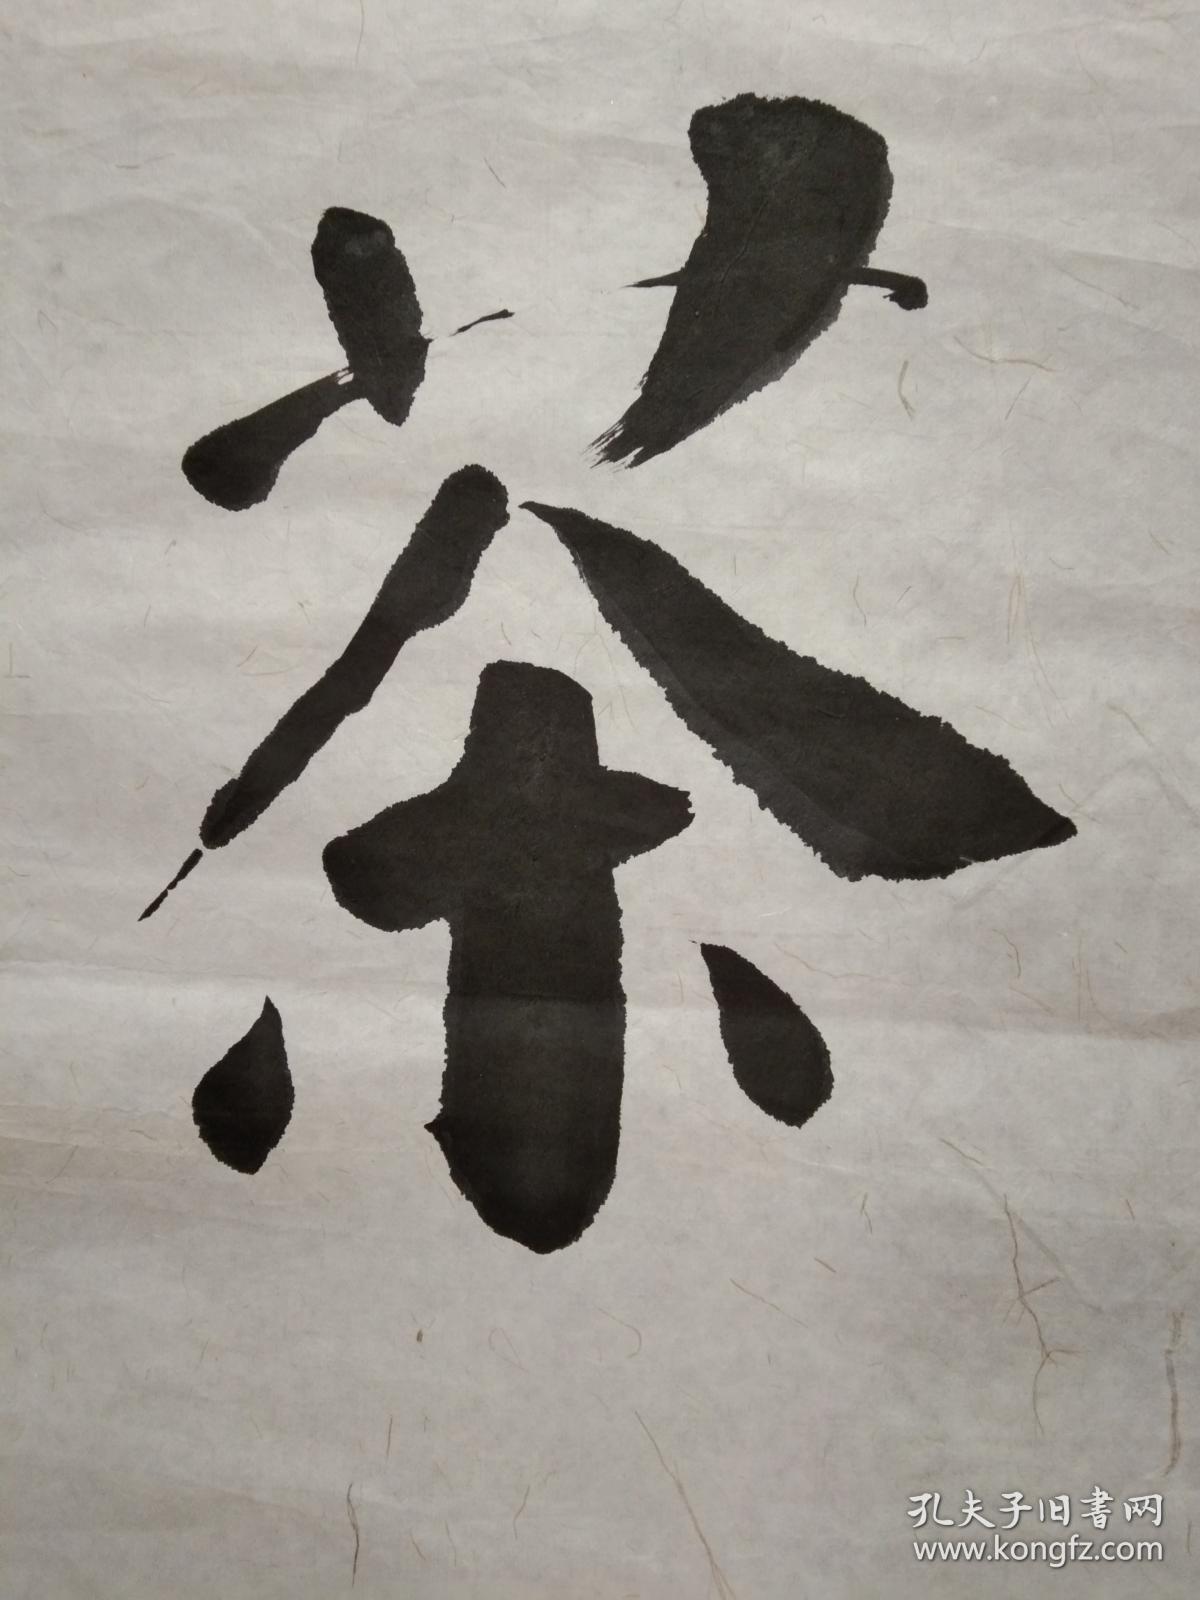 茶
孔夫子旧書网
www.kongfz.com